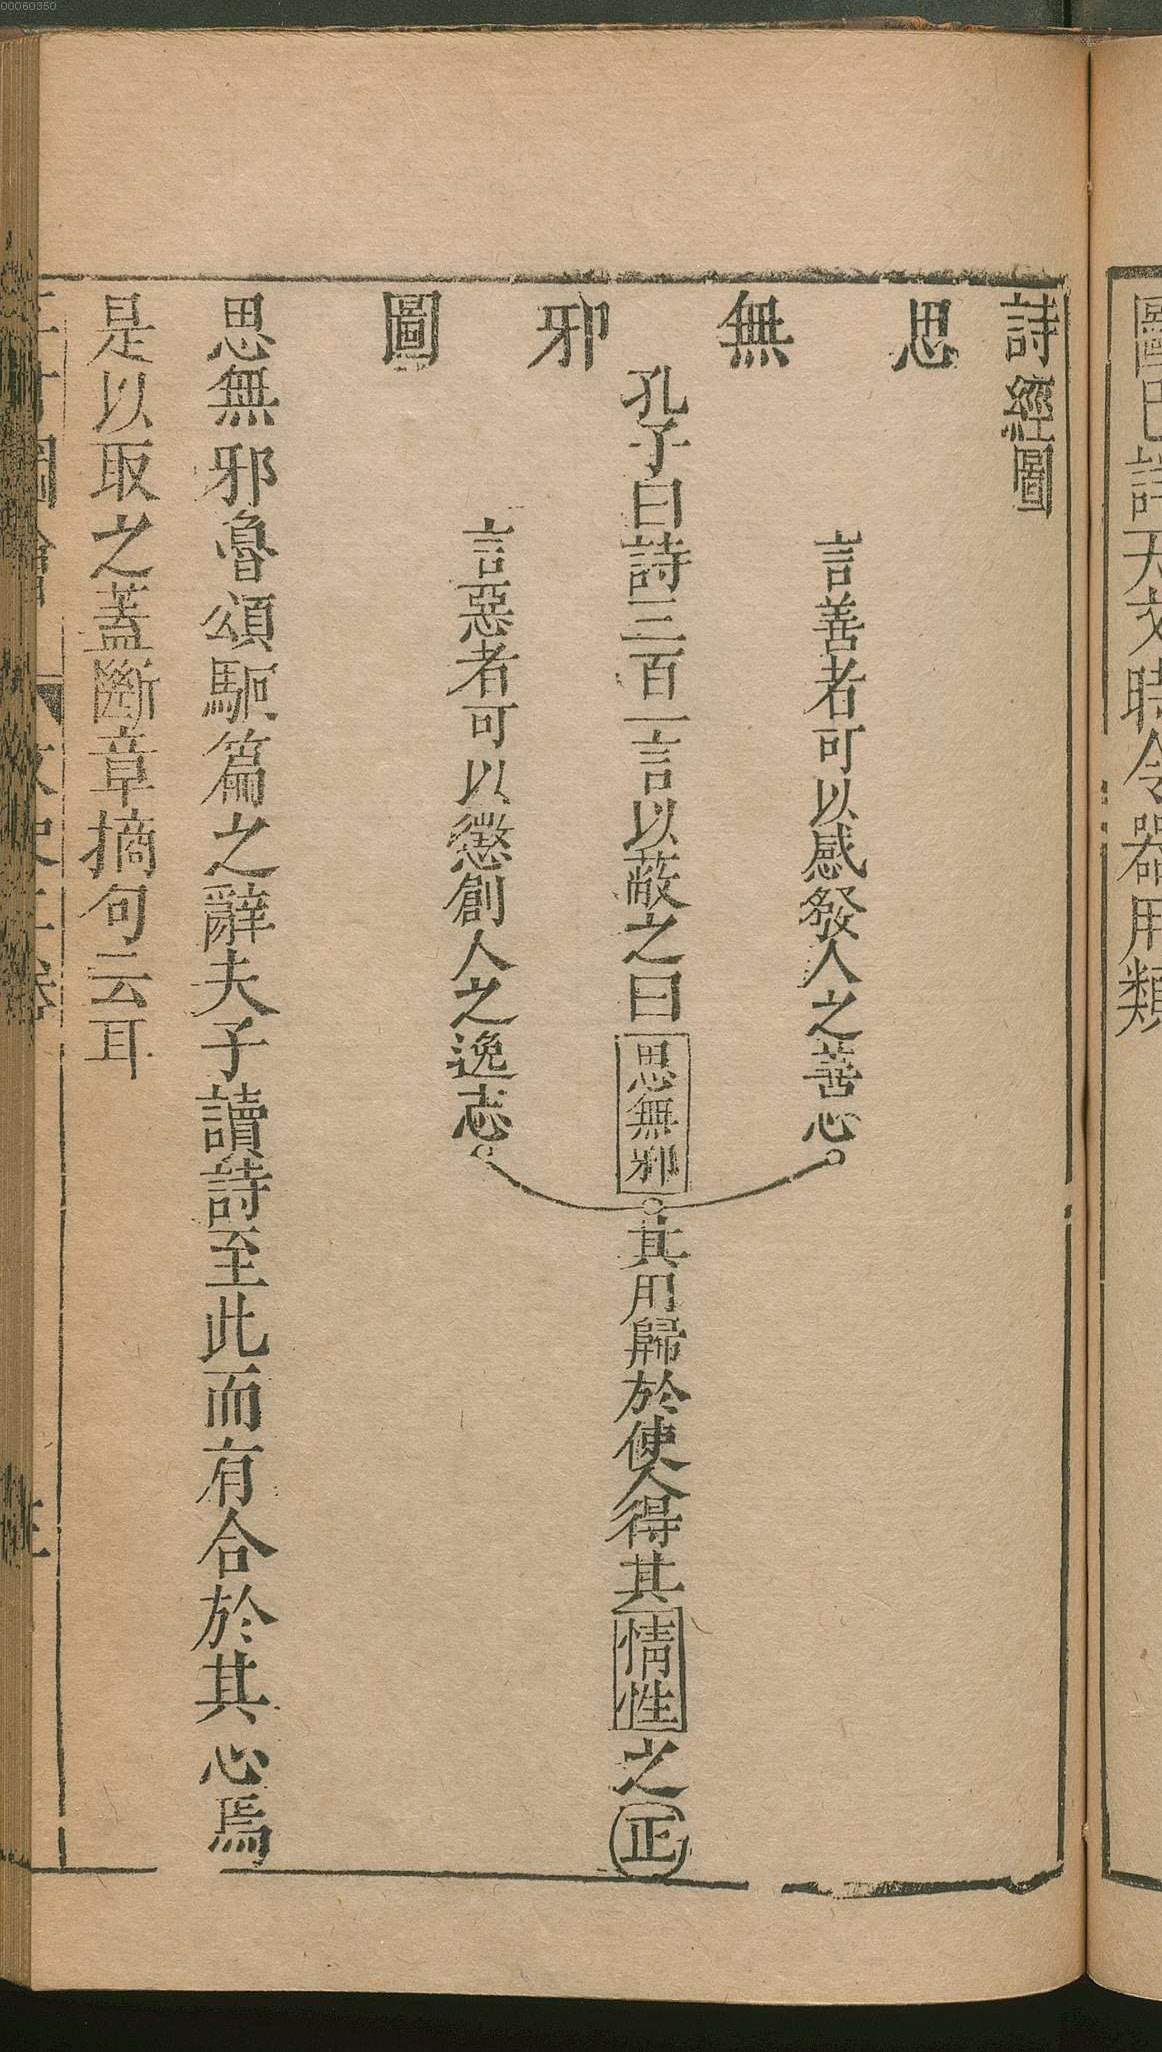 00060350
圖已詳天文時令器用類
詩經圖
思無邪圖
言善者可以感發人之善心
孔子曰詩三百一言以蔽之曰思無邪其用歸於使人得其情性之正
言惡者可以懲創人之逸志
思無邪魯頌駉篇之辭夫子讀詩至此而有合於其心焉
是以取之蓋斷章摘句云耳